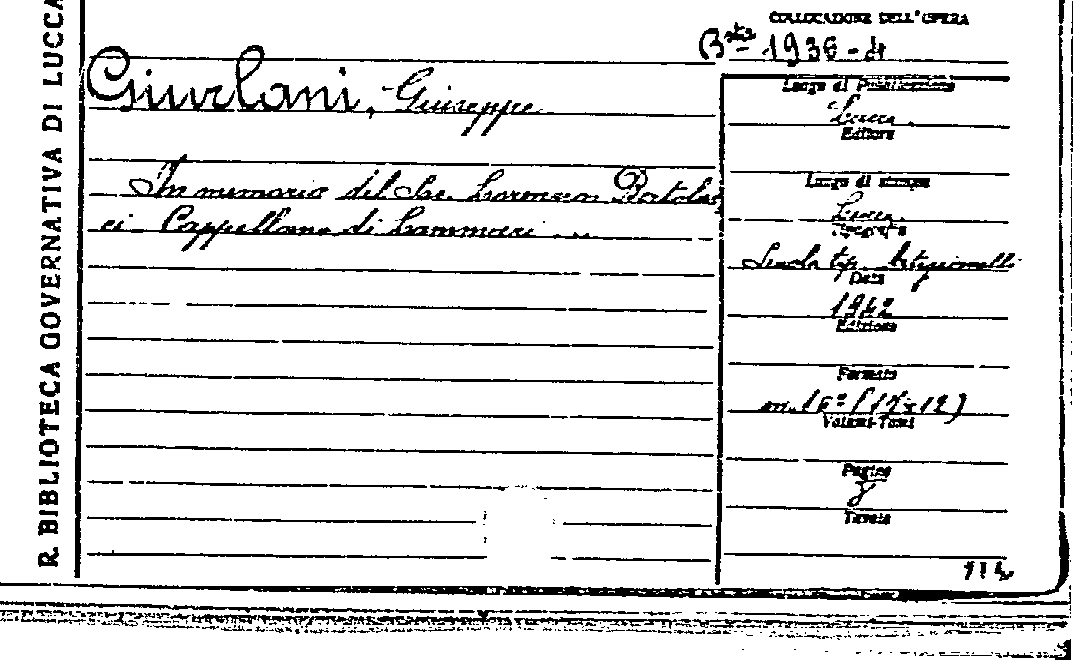 R. BIBLIOTECA GOVERNATIVA DI LUCCA
COLLOCAZIONE DELL'OPERA
Bsta 1936-4
Giurlani, Giuseppe
In memoria del Sac. Lorenzo Bortolac
ci Cappellano di Lammari ...
Luogo di Pubblicazione
Lucca.
Editore
Luogo di stampa
Lucca.
Tipografia
Scuola tip. Artigianelli
Data
1942
Edizione
Formato
in 16° (17x12)
Volumi-Tomi
Pagine
Tavole